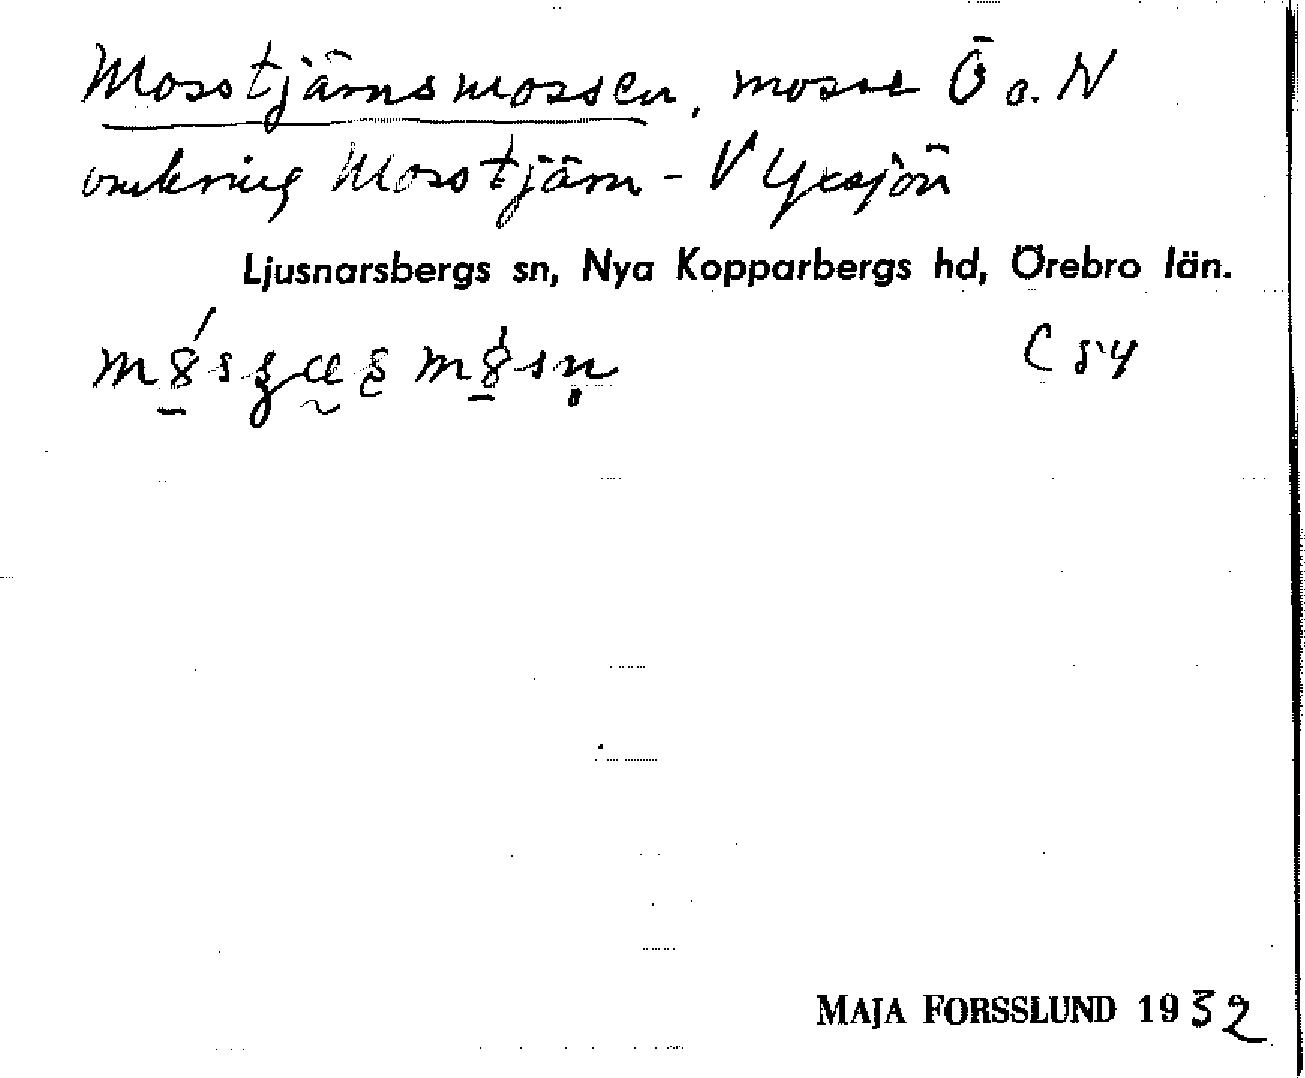 Mosstjärnsmossen, mosse Ö o. N
omkring Mosstjärn - V Yxsjön
Ljusnarsbergs sn, Nya Kopparbergs hd, Örebro län.
C 54
MAJA FORSSLUND 1952